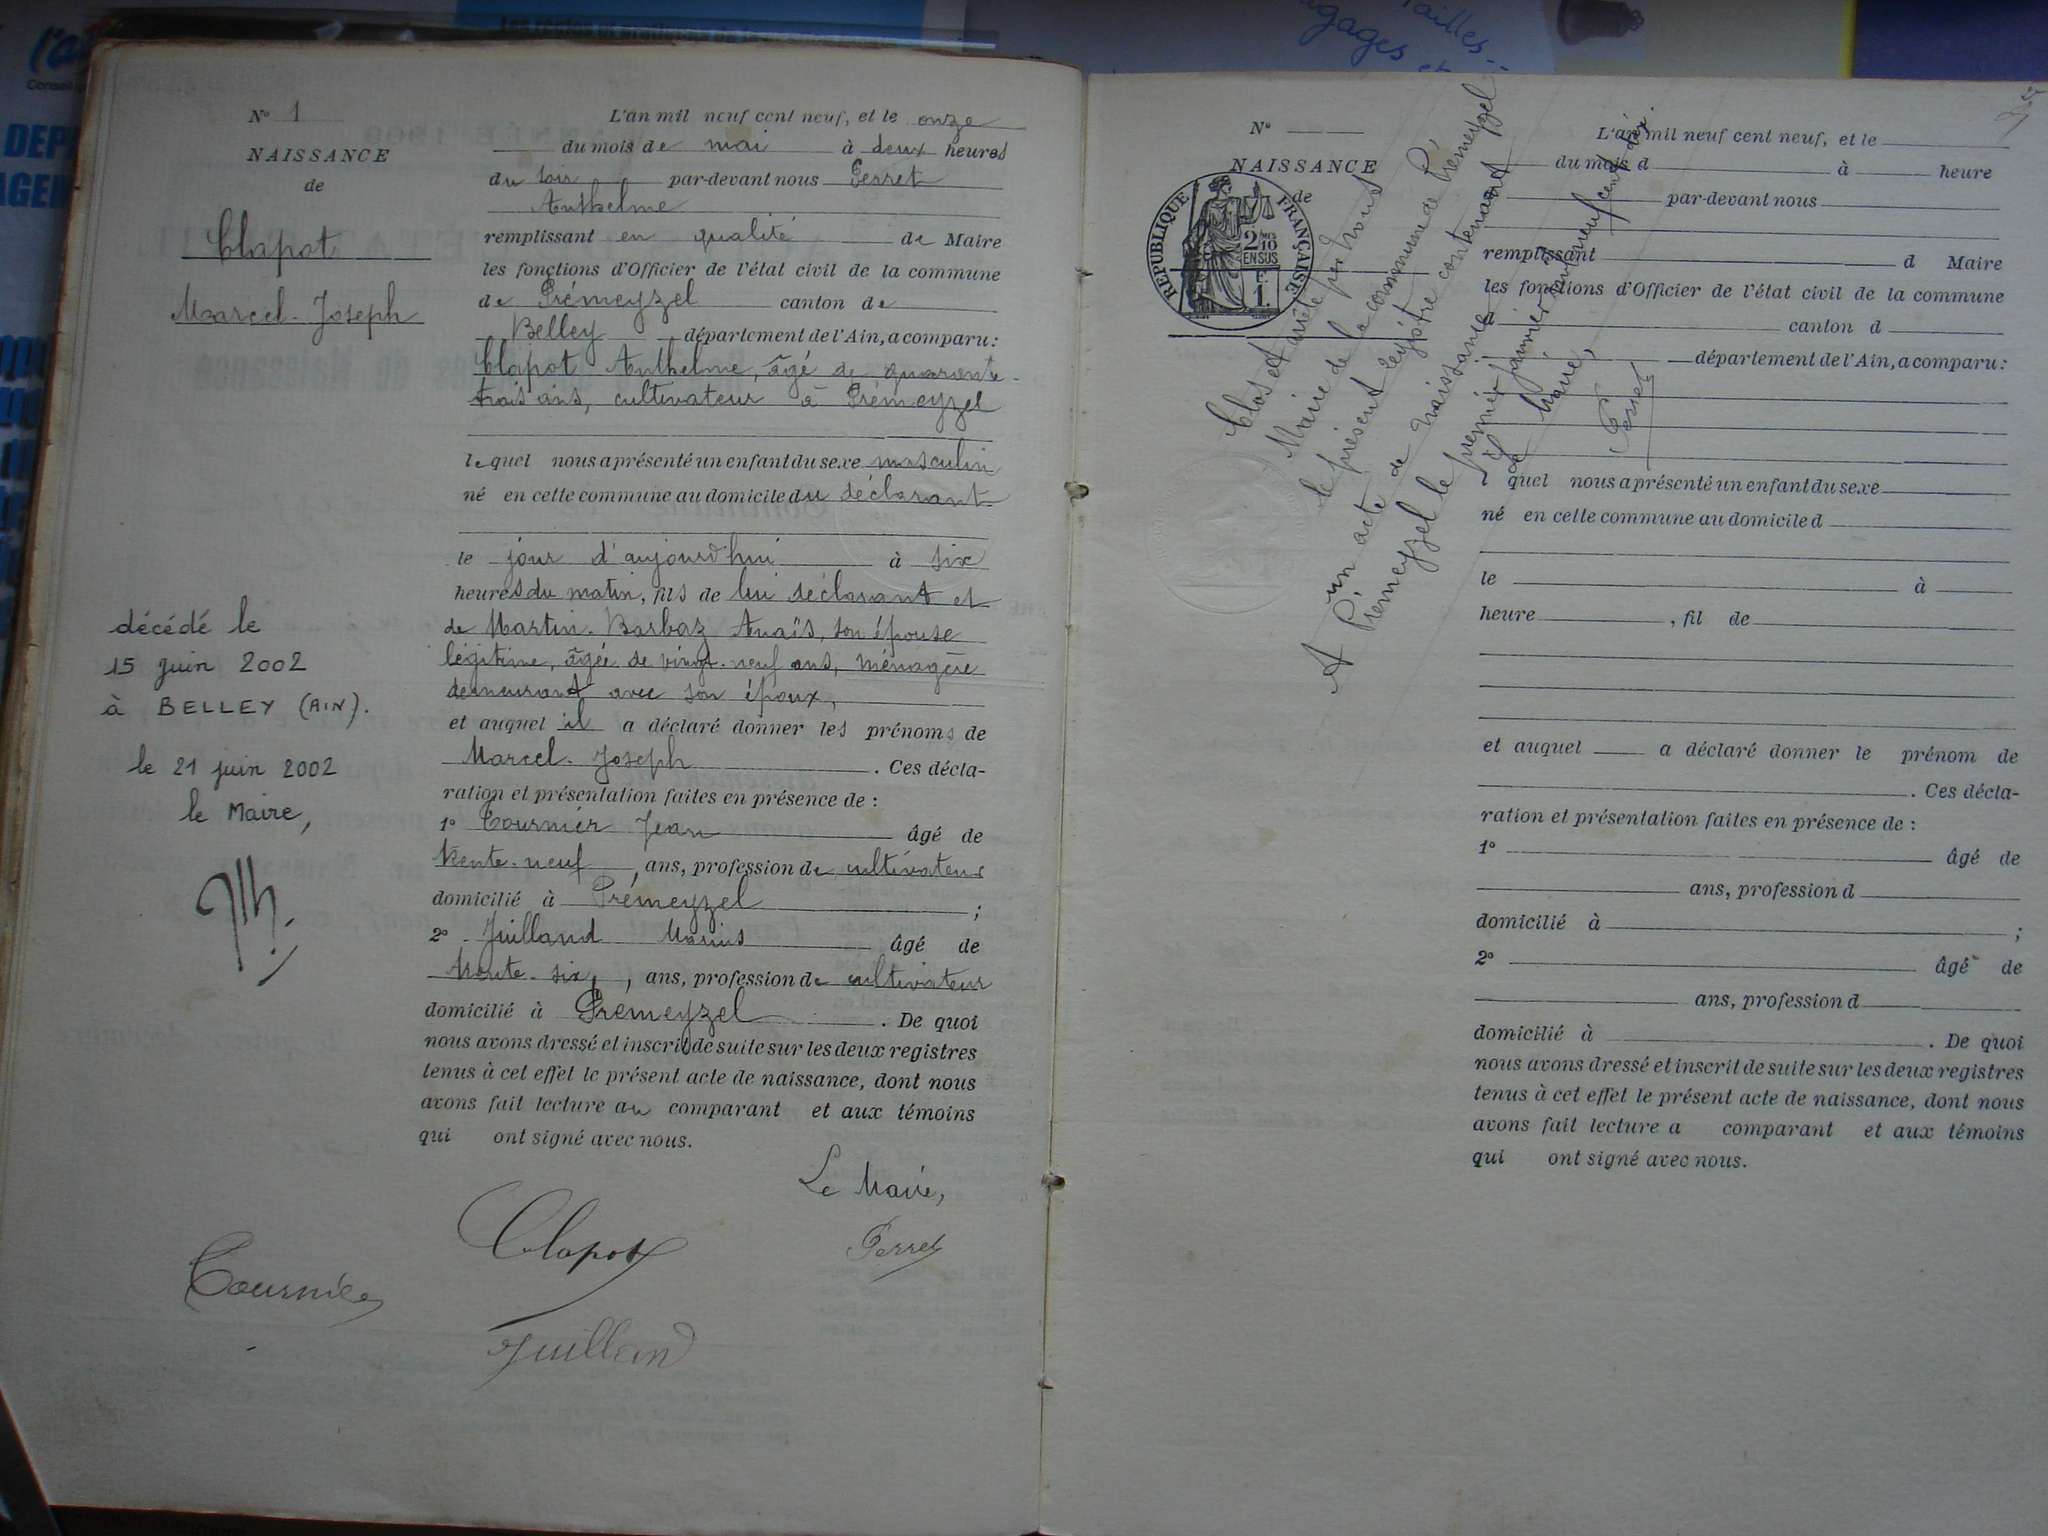 N° 1
NAISSANCE
de
Clapot
Marcel-Joseph
décédé le
15 juin 2002
à BELLEY (AIN).
le 21 juin 2002
le Maire,
L'an mil neuf cent neuf, et le onze
du mois de mai à deux heures
du soir par-devant nous Perret
Anthelme
remplissant en qualité de Maire
les fonctions d'Officier de l'état civil de la commune
de Prémeyzel canton de
Belley département de l'Ain, a comparu:
Clapot Anthelme, âgé de quarante-
trois ans, cultivateur à Prémeyzel
lequel nous a présenté un enfant du sexe masculin
né en cette commune au domicile du déclarant
le jour d'aujourd'hui à six
heures du matin, fils de lui déclarant et
de Martin-Barbaz Anaïs, son épouse
légitime, âgée de vingt-neuf ans, ménagère
demeurant avec son époux,
et auquel il a déclaré donner les prénoms de
Marcel-Joseph. Ces décla-
ration et présentation faites en présence de :
1° Tournier Jean âgé de
trente-neuf, ans, profession de cultivateur
domicilié à Prémeyzel ;
2° Juilland Marius âgé de
trente-six, ans, profession de cultivateur
domicilié à Prémeyzel. De quoi
nous avons dressé et inscrit de suite sur les deux registres
tenus à cet effet le présent acte de naissance, dont nous
avons fait lecture au comparant et aux témoins
qui ont signé avec nous.
Le Maire,
Clapot
Perret
Tournier
Juilland
N°
NAISSANCE
de
RÉPUBLIQUE FRANÇAISE
2/10
EN SUS
F.
1.
L'an mil neuf cent neuf, et le
du mois d à heure
par-devant nous
remplissant d Maire
les fonctions d'Officier de l'état civil de la commune
d canton d
département de l'Ain, a comparu:
l quel nous a présenté un enfant du sexe
né en cette commune au domicile d
le à
heure , fil de
et auquel a déclaré donner le prénom de
. Ces décla-
ration et présentation faites en présence de :
1° âgé de
ans, profession d
domicilié à ;
2° âgé de
ans, profession d
domicilié à . De quoi
nous avons dressé et inscrit de suite sur les deux registres
tenus à cet effet le présent acte de naissance, dont nous
avons fait lecture a comparant et aux témoins
qui ont signé avec nous.
Clos et arrêté par nous
Maire de la commune de Prémeyzel
le présent registre contenant
un acte de naissance
A Prémeyzel le premier janvier mil neuf cent dix
Le Maire,
Perret